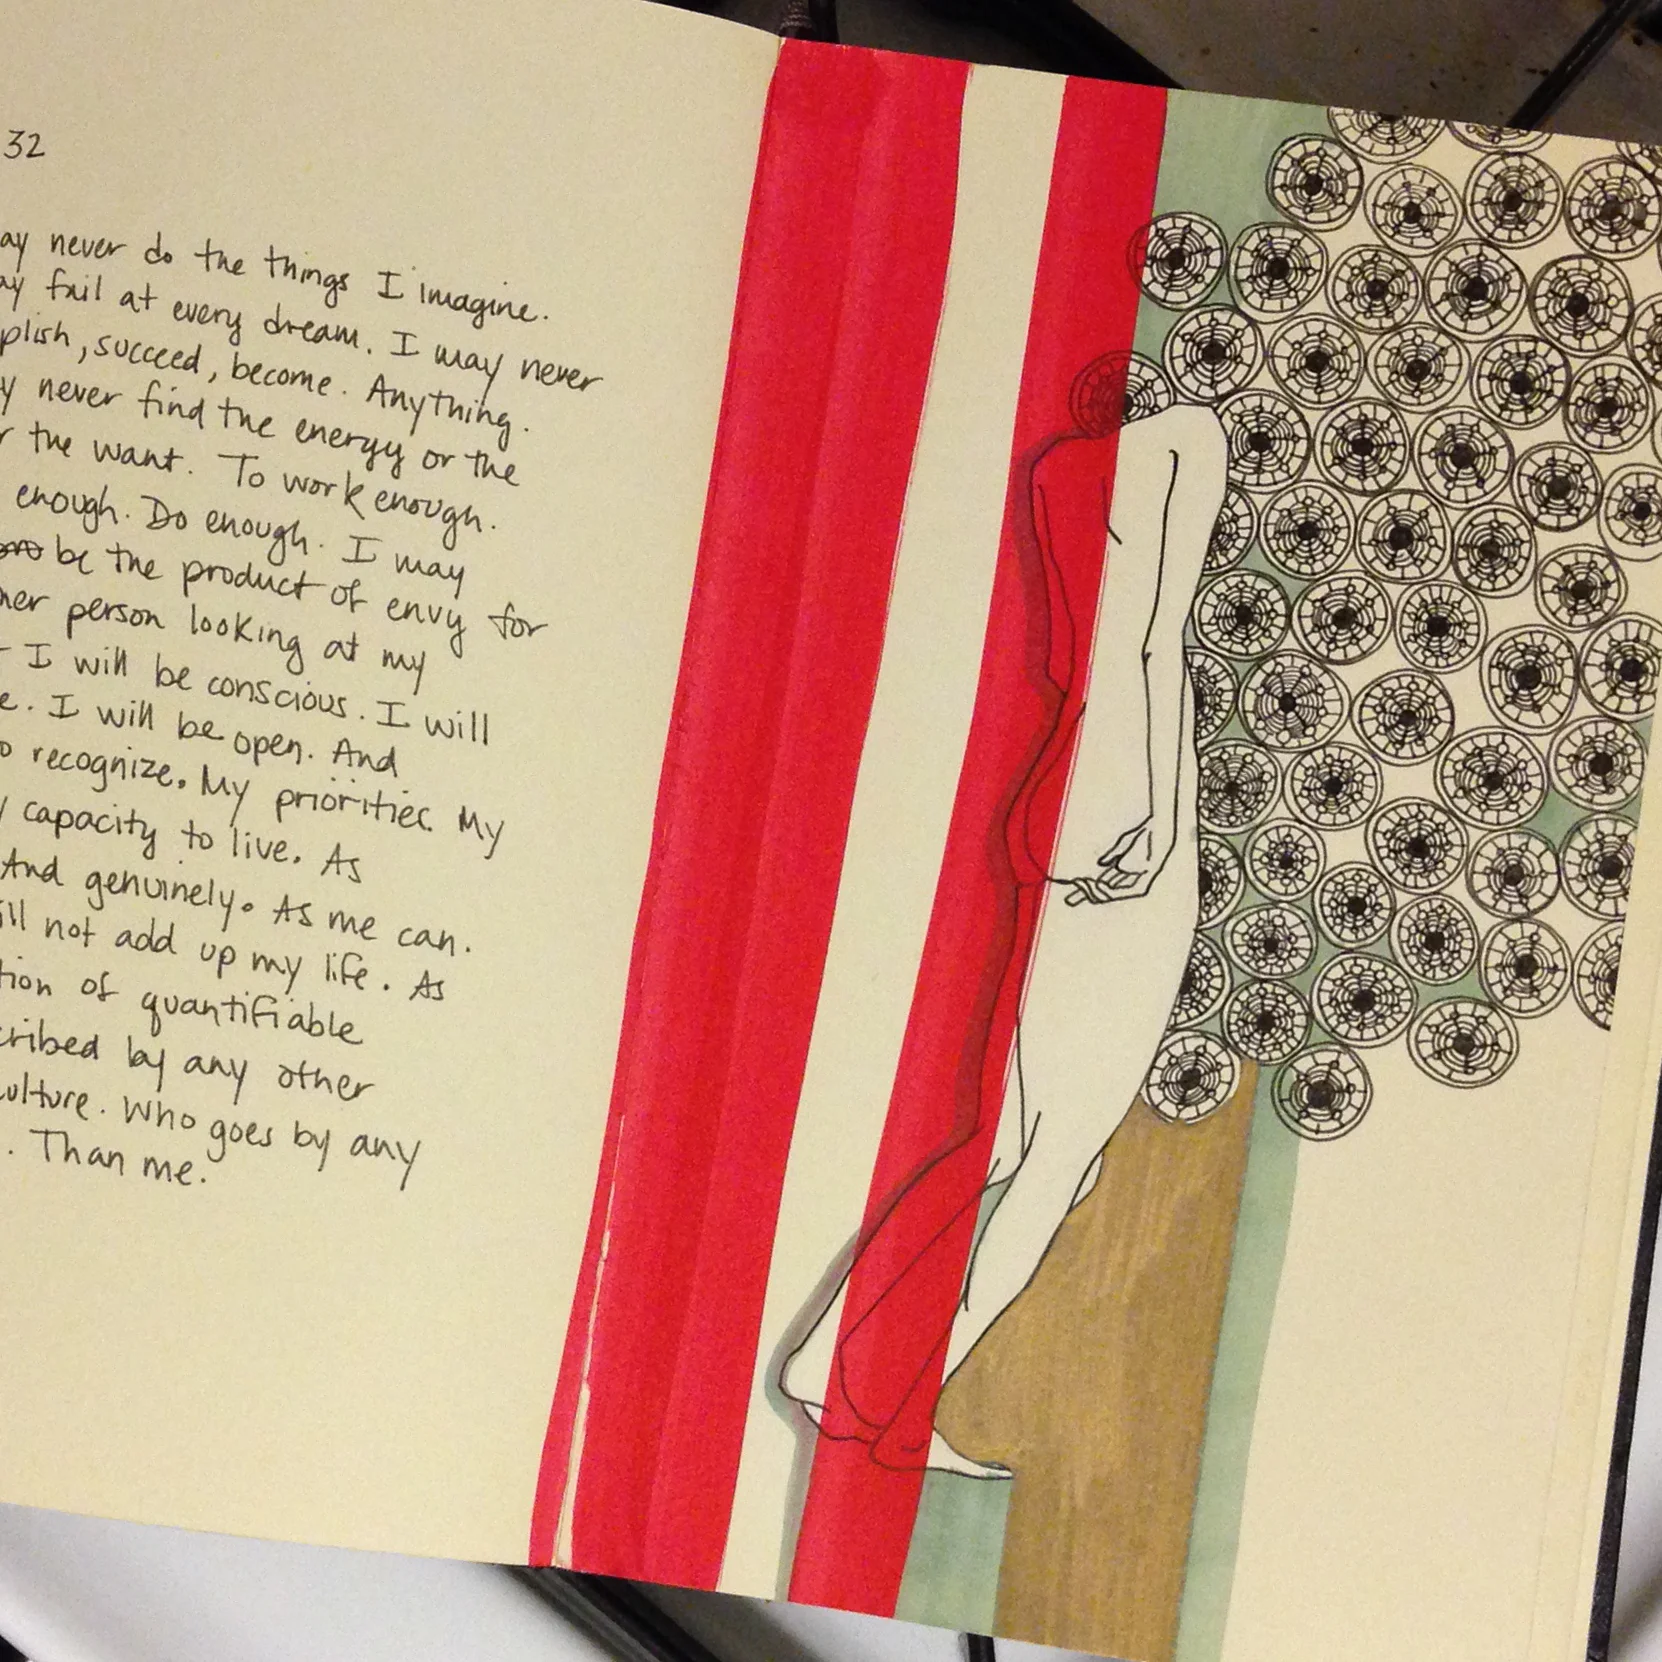 32
ay never do the things I imagine.
ay fail at every dream. I may never
plish, succeed, become. Anything.
y never find the energy or the
r the want. To work enough.
enough. Do enough. I may
be the product of envy for
her person looking at my
I will be conscious. I will
e. I will be open. And
o recognize. My priorities. My
y capacity to live. As
And genuinely. As me can.
ill not add up my life. As
tion of quantifiable
cribed by any other
ulture. Who goes by any
. Than me.